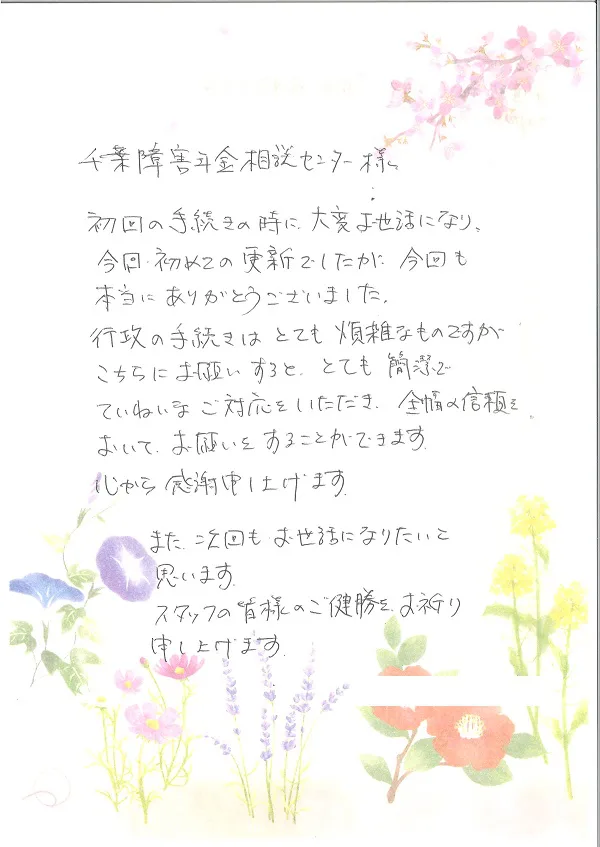 千葉障害年金相談センター様
初回の手続きの時に、大変お世話になり、
今回、初めての更新でしたが、今回も
本当にありがとうございました。
行政の手続きはとても煩雑なものですが
こちらにお願いすると、とても簡潔で
ていねいなご対応をいただき、全幅の信頼を
おいて、お願いをすることができます。
心から感謝申し上げます。
また、次回も、お世話になりたいと
思います。
スタッフの皆様のご健勝を、お祈り
申し上げます。